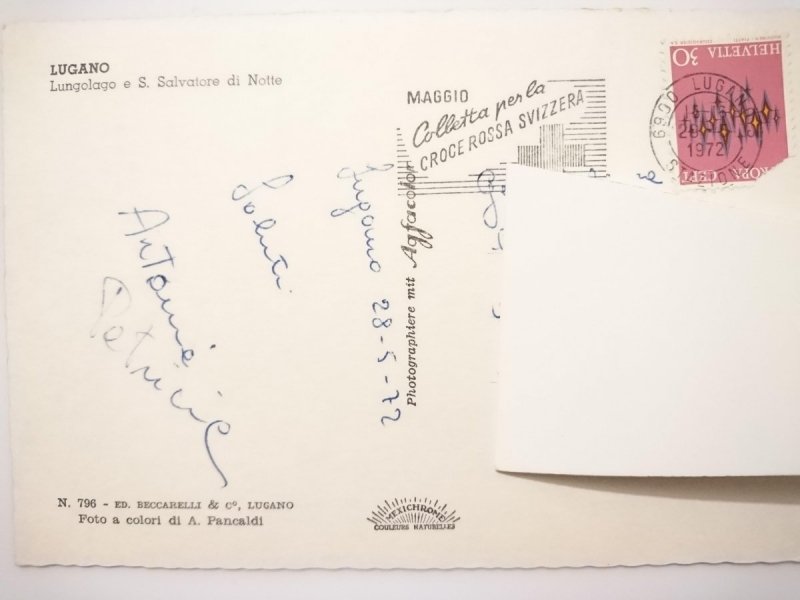 LUGANO
Lungolago e S. Salvatore di Notte
MAGGIO
Colletta per la
CROCE ROSSA SVIZZERA
HELVETIA 30
6900 LUGANO
1972
Photographiere mit Agfacolor
Lugano 28-5-72
Saluti
Antonio
Patrizie
N. 796 - ED. BECCARELLI & Co, LUGANO
Foto a colori di A. Pancaldi
MEXICHROME
COULEURS NATURELLES